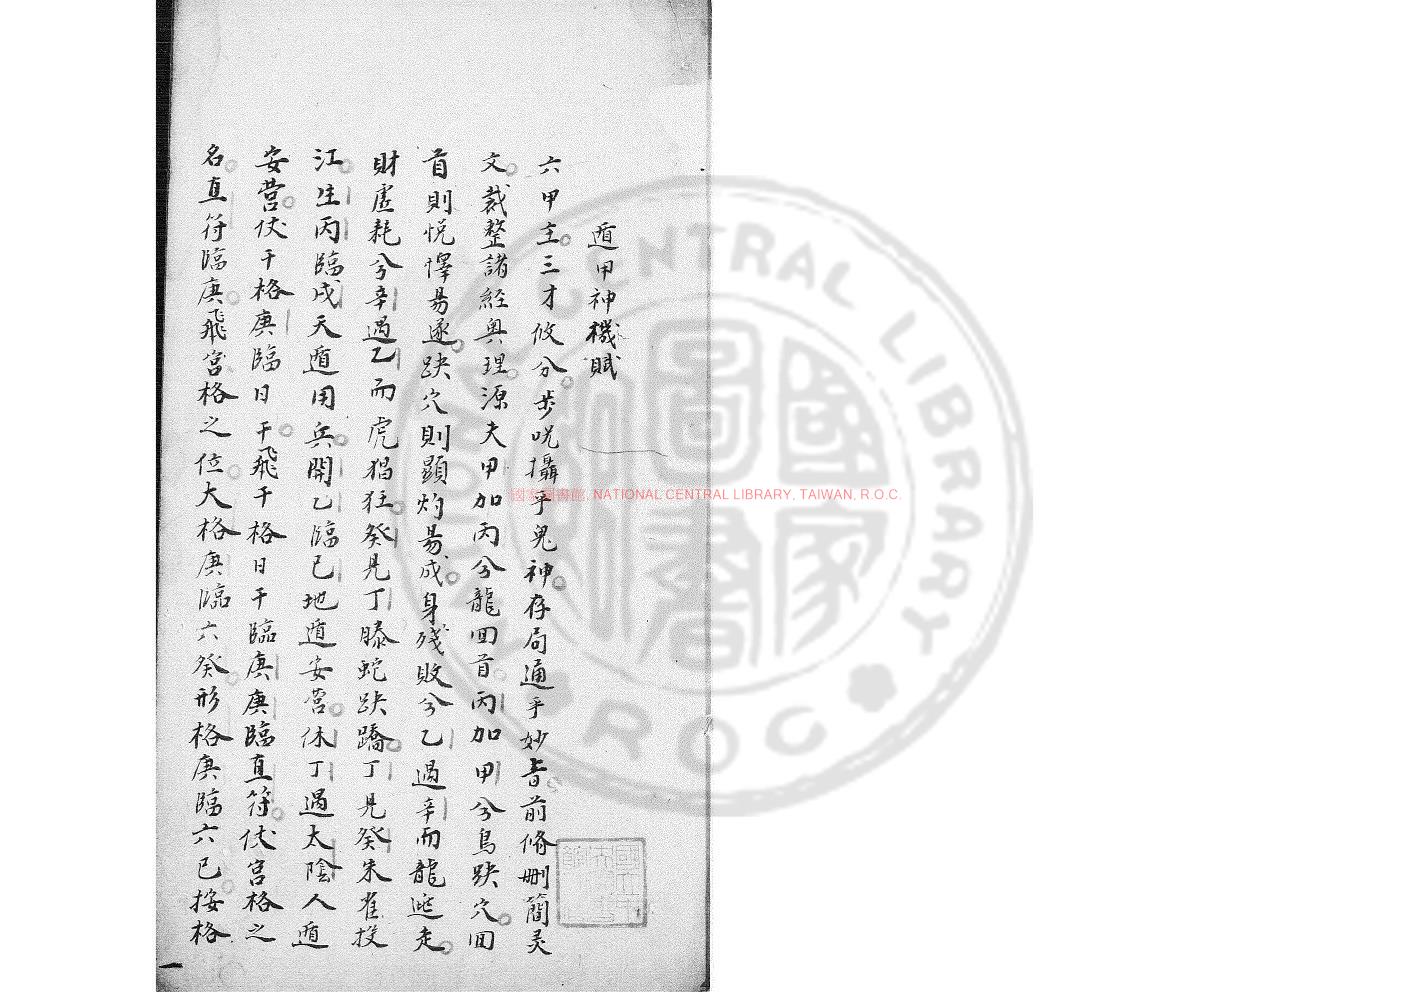 遁甲神機賦
六甲主三才攸分步呪攝乎鬼神存局通乎妙旨前脩删簡灵
文裁整諸經奥理源夫甲加丙兮龍回首丙加甲兮鳥跌穴回
首則悦懌易遂跌穴則顕灼易成身殘敗兮乙過辛而龍迯走
財虚耗兮辛過乙而虎猖狂癸見丁滕蛇跌蹻丁見癸朱雀投
江生丙臨戌天遁用兵開乙臨己地遁安营休丁過太陰人遁
安营伏干格庚臨日干飛干格日干臨庚庚臨直符伏宫格之
名直符臨庚飛宫格之位大格庚臨六癸形格庚臨六己按格
一
國家圖書館, NATIONAL CENTRAL LIBRARY, TAIWAN, R.O.C.
NATIONAL CENTRAL LIBRARY ROC
國家圖書